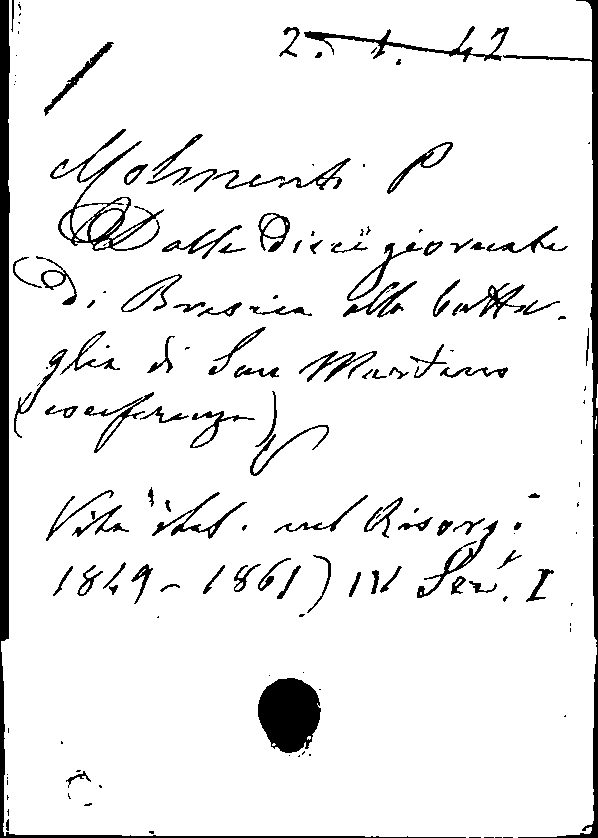 2. 1. 42
Molmenti P
Dalle Dieci giornate
di Brescia alla batta-
glia di San Martino
(conferenza)
Vita ital. nel Risorg.
1849-1861) IV Ser. I